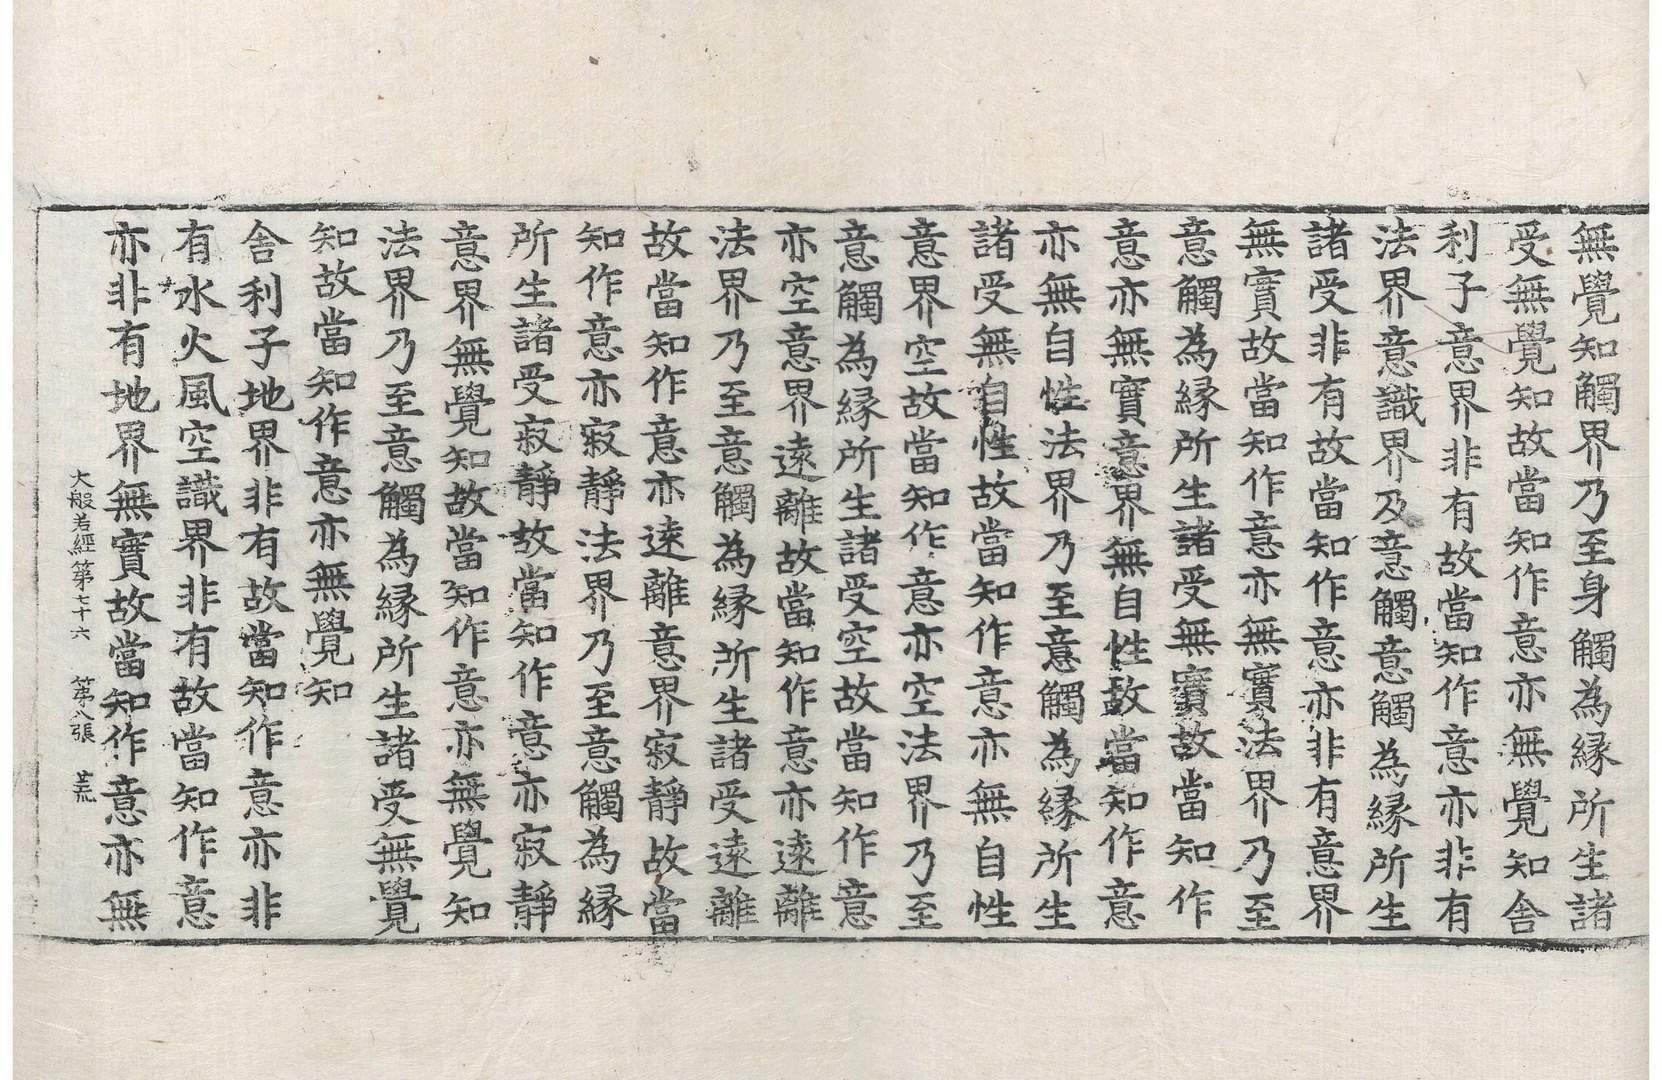 無覺知觸界乃至身觸為縁所生諸
受無覺知故當知作意亦無覺知舍
利子意界非有故當知作意亦非有
法界意識界及意觸意觸為縁所生
諸受非有故當知作意亦非有意界
無實故當知作意亦無實法界乃至
意觸為縁所生諸受無實故當知作
意亦無實意界無自性故當知作意
亦無自性法界乃至意觸為縁所生
諸受無自性故當知作意亦無自性
意界空故當知作意亦空法界乃至
意觸為縁所生諸受空故當知作意
亦空意界遠離故當知作意亦遠離
法界乃至意觸為縁所生諸受遠離
故當知作意亦遠離意界寂靜故當
知作意亦寂靜法界乃至意觸為縁
所生諸受寂靜故當知作意亦寂靜
意界無覺知故當知作意亦無覺知
法界乃至意觸為縁所生諸受無覺
知故當知作意亦無覺知
舍利子地界非有故當知作意亦非
有水火風空識界非有故當知作意
亦非有地界無實故當知作意亦無
大般若經第七十六 第八張 荒